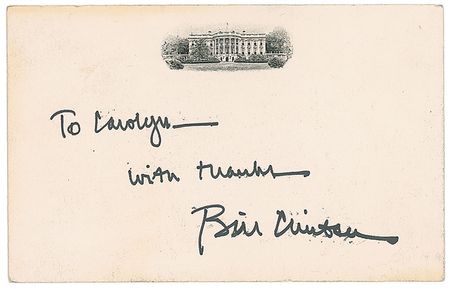 To Carolyn—
with thanks
Bill Clinton